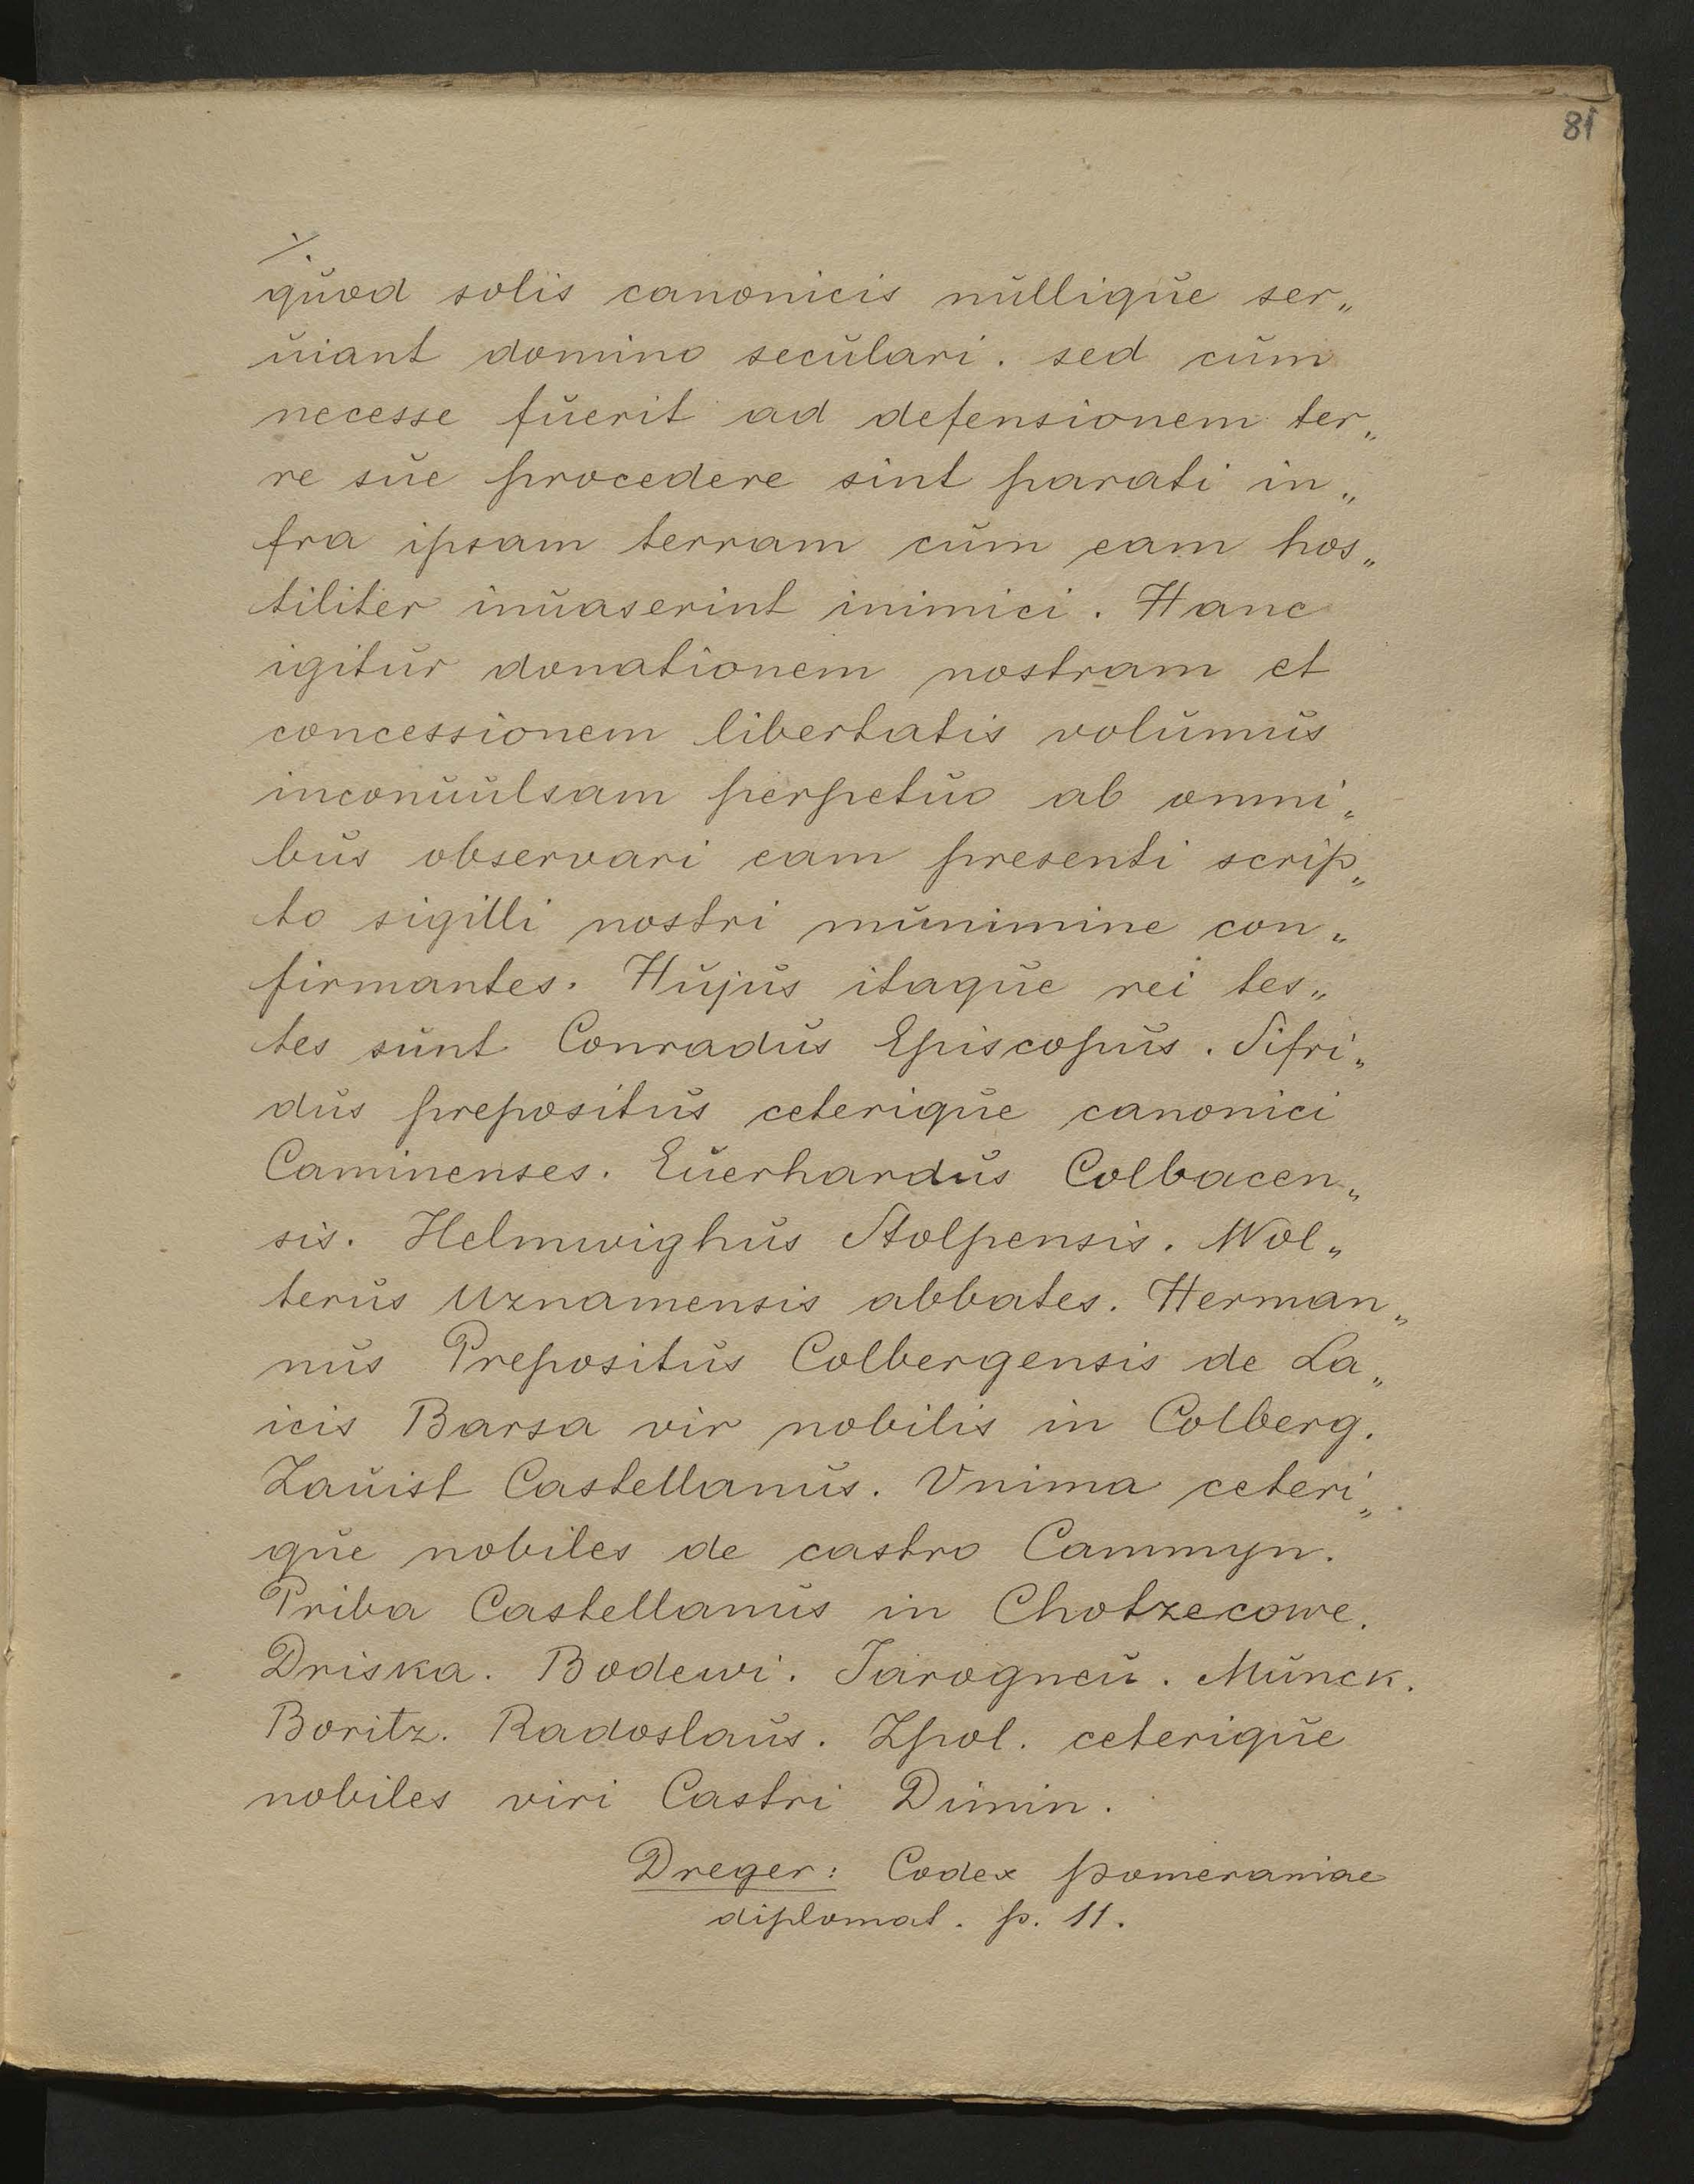 81
./.
quod solis canonicis nullique ser„
uiant domino seculari. sed cum
necesse fuerit ad defensionem ter„
re sue procedere sint parati in„
fra ipsam terram cum eam hos„
tiliter inuaserint inimici. Hanc
igitur donationem nostram et
concessionem libertatis volumus
inconuulsam perpetuo ab omni„
bus observari eam presenti scrip„
to sigilli nostri munimine con„
firmantes. Hujus itaque rei tes„
tes sunt Conradus Episcopus. Sifri„
dus prepositus ceterique canonici
Caminenses. Euerhardus Colbacen„
sis. Helmwighus Stolpensis. Wol„
terus Uznamensis abbates. Herman„
nus Prepositus Colbergensis de La„
icis Barsa vir nobilis in Colberg.
Zauist Castellanus. Vnima ceteri„
que nobiles de castro Cammyn.
Priba Castellanus in Chotzecowe.
Driska. Bodewi. Jarogneu. Munck.
Boritz. Radoslaus. Zpol. ceterique
nobiles viri Castri Dimin.
Dreger: Codex Pomeraniae
diplomat. p. 11.